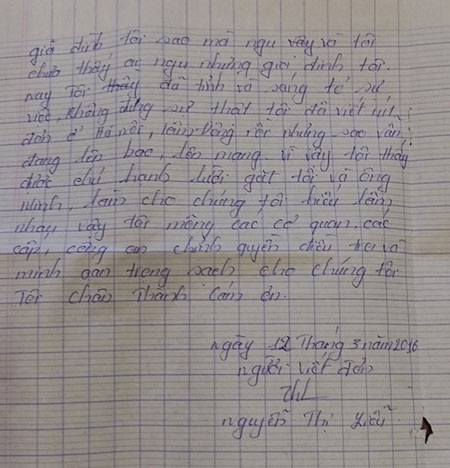 gia đình tôi sao mà ngu vậy và tôi
chưa thấy ai ngu như gia đình tôi.
nay Tôi thấy đã tỉnh và sáng tỏ sự
việc, không đúng sự thật tôi đã viết rút
đơn ở Hà nội, Lâm Đồng rồi nhưng sao vẫn
đang lên báo, lên mạng. vì vậy tôi thấy
được chú hạnh lười gát tôi và ông
ninh, làm cho chúng tôi hiểu lầm
nhau vậy tôi mông các cơ quan, các
cấp, công an chính quyền điều tra và
minh oan trong sạch cho chúng tôi
Tôi chân Thành cám ơn.
ngày 12 Tháng 3 năm 2016
người viết đơn
nguyễn Thị Liễu